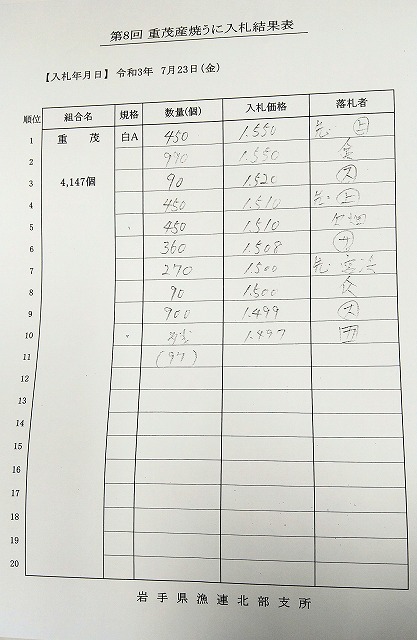 第8回 重茂産焼うに入札結果表
【入札年月日】 令和3年 7月23日(金)
順位 組合名 規格 数量(個) 入札価格 落札者
1 重茂 白A 450 1.550
2 990 1.550
3 4,147個 90 1.520
4 450 1.510
5 〃 450 1.510
6 360 1.508
7 270 1.500
8 90 1.500
9 900 1.499
10 〃 1.497
11 (97)
12
13
14
15
16
17
18
19
20
岩手県漁連北部支所